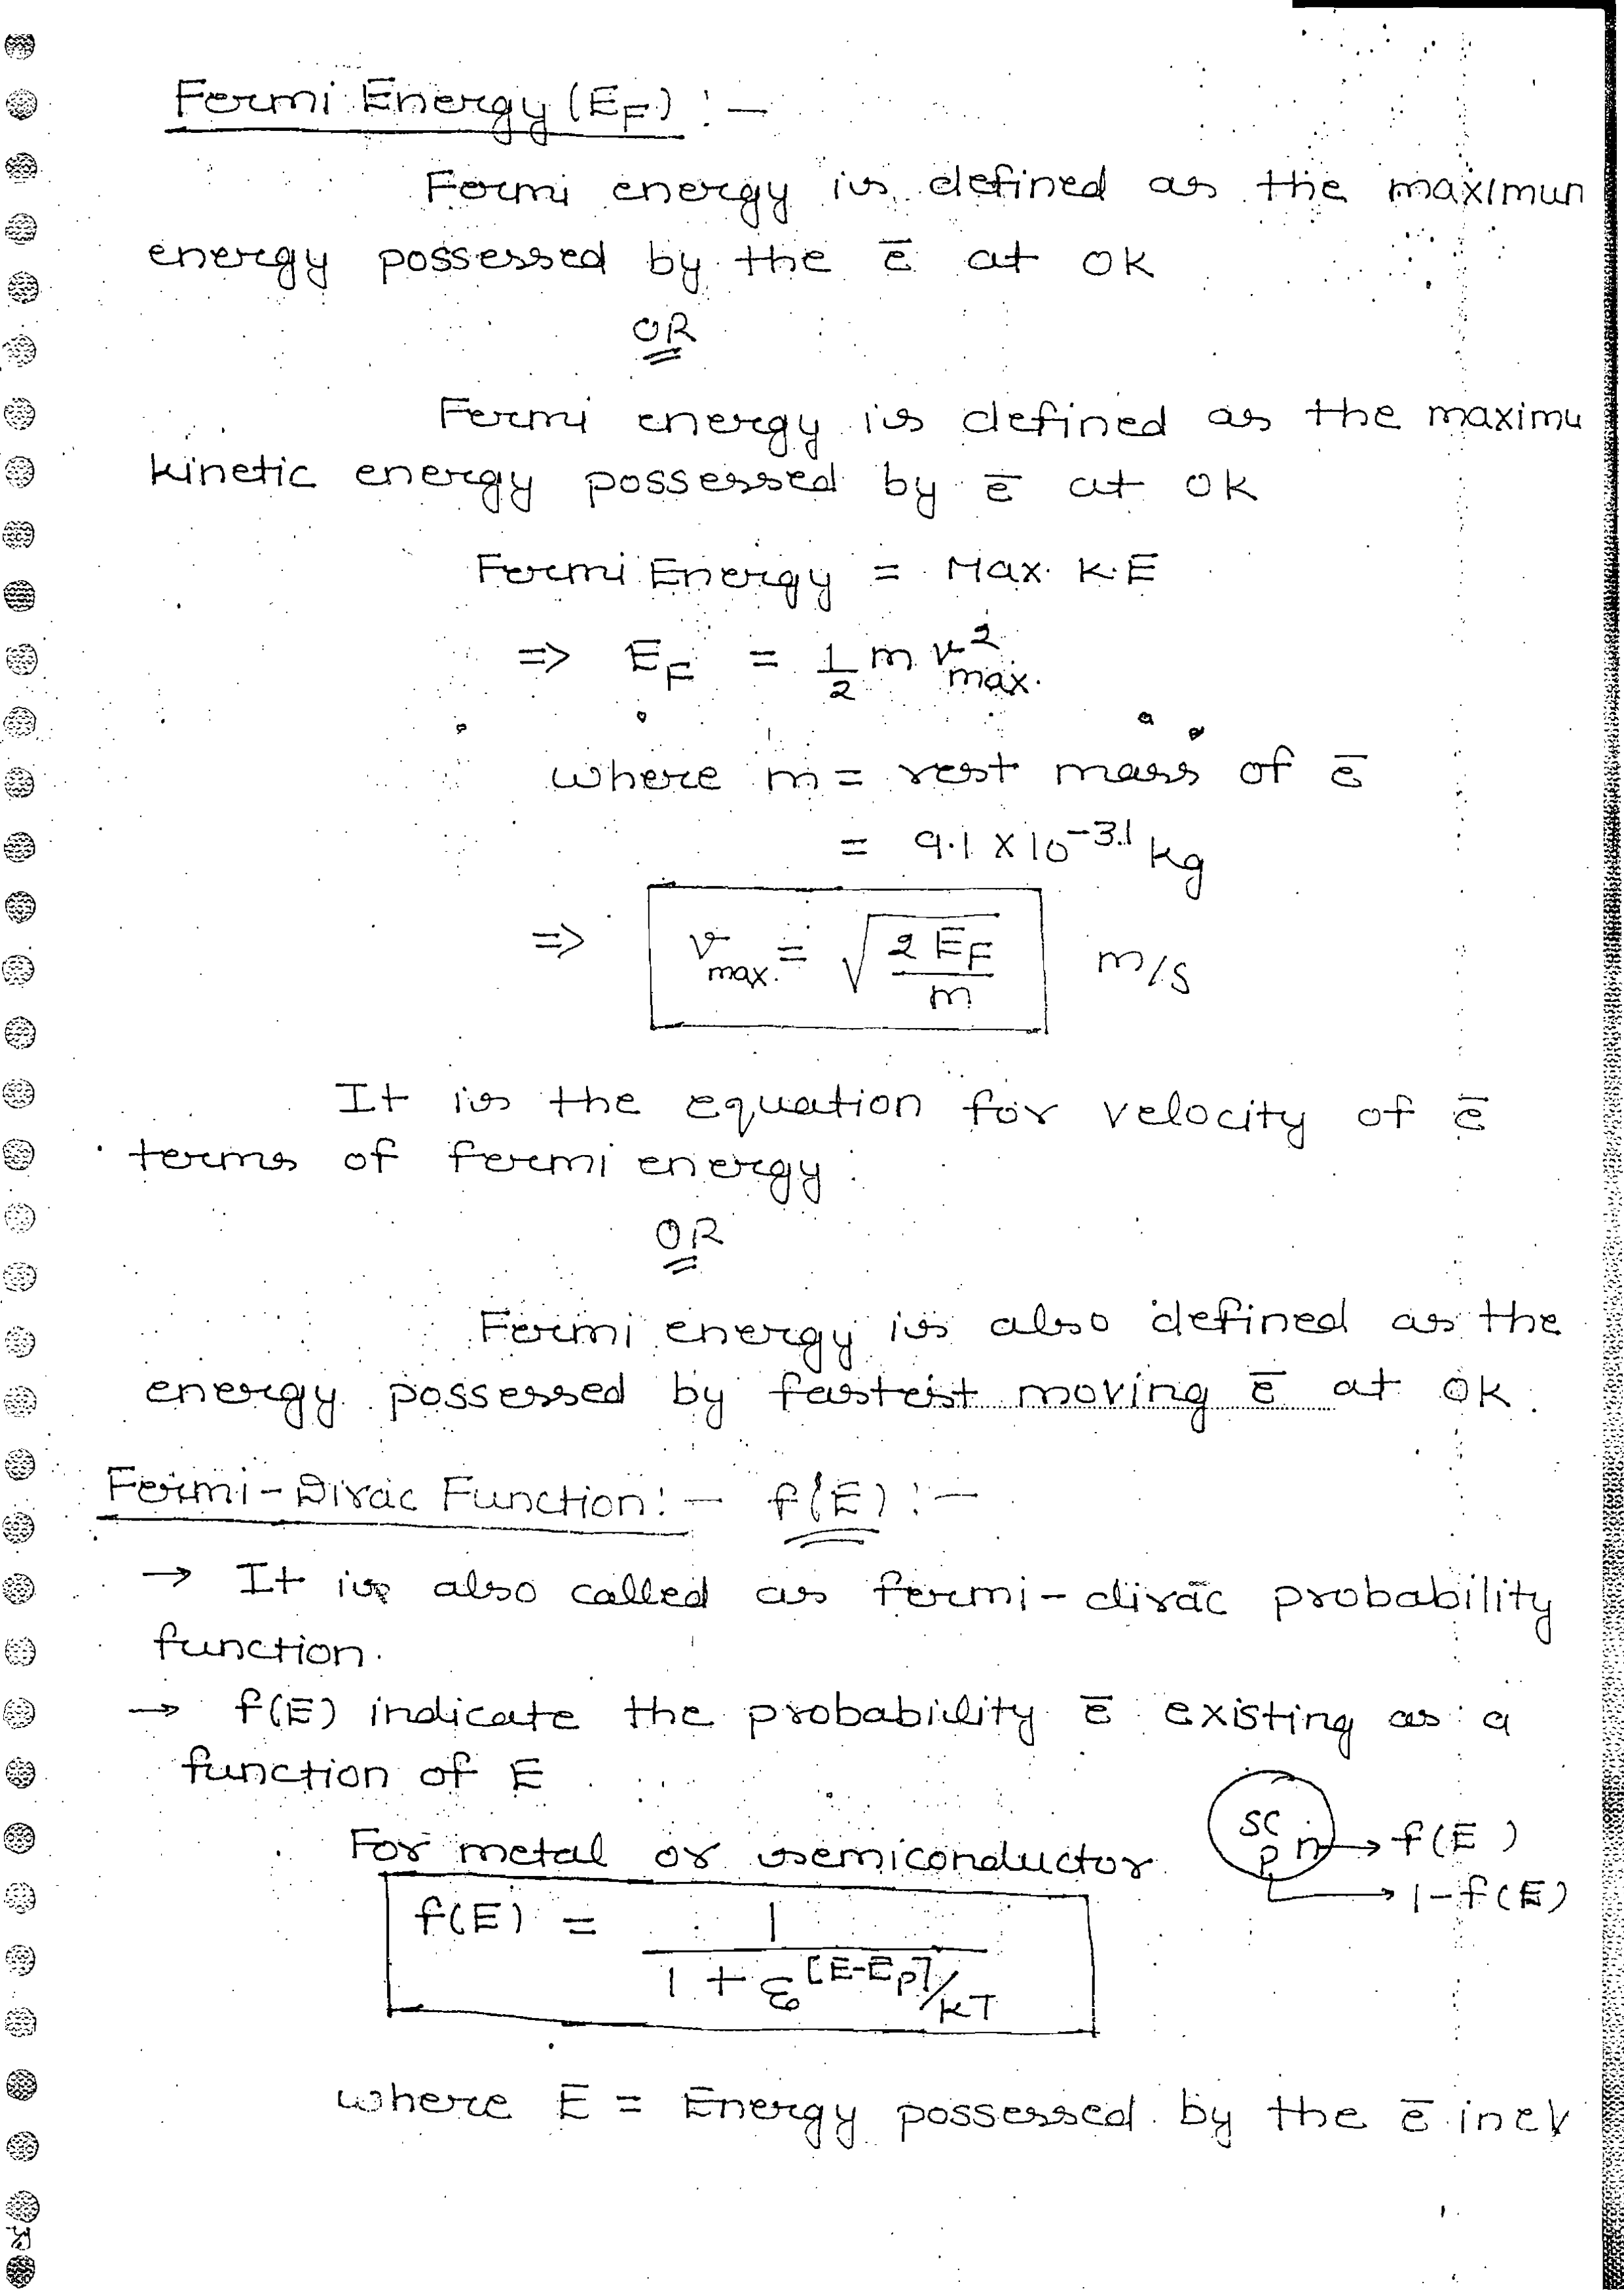 Fermi Energy (E_F) :-
Fermi energy is defined as the maximun
energy possessed by the ē at 0K
OR
Fermi energy is defined as the maximu
kinetic energy possessed by ē at 0K
Fermi Energy = Max. K.E
=> E_F = 1/2 m v²max.
where m = rest mass of ē
= 9.1 × 10^-31 kg
=> v_max. = √(2 E_F / m) m/s
It is the equation for velocity of ē
terms of fermi energy.
OR
Fermi energy is also defined as the
energy possessed by fastest moving ē at 0K.
Fermi-Dirac Function:- f(E) :-
→ It is also called as fermi-dirac probability
function.
→ f(E) indicate the probability ē existing as a
function of E
SC n → f(E)
For metal or semiconductor.
p → 1-f(E)
f(E) = 1 / (1 + e^[E-E_F]/KT)
where E = Energy possessed by the ē in eV